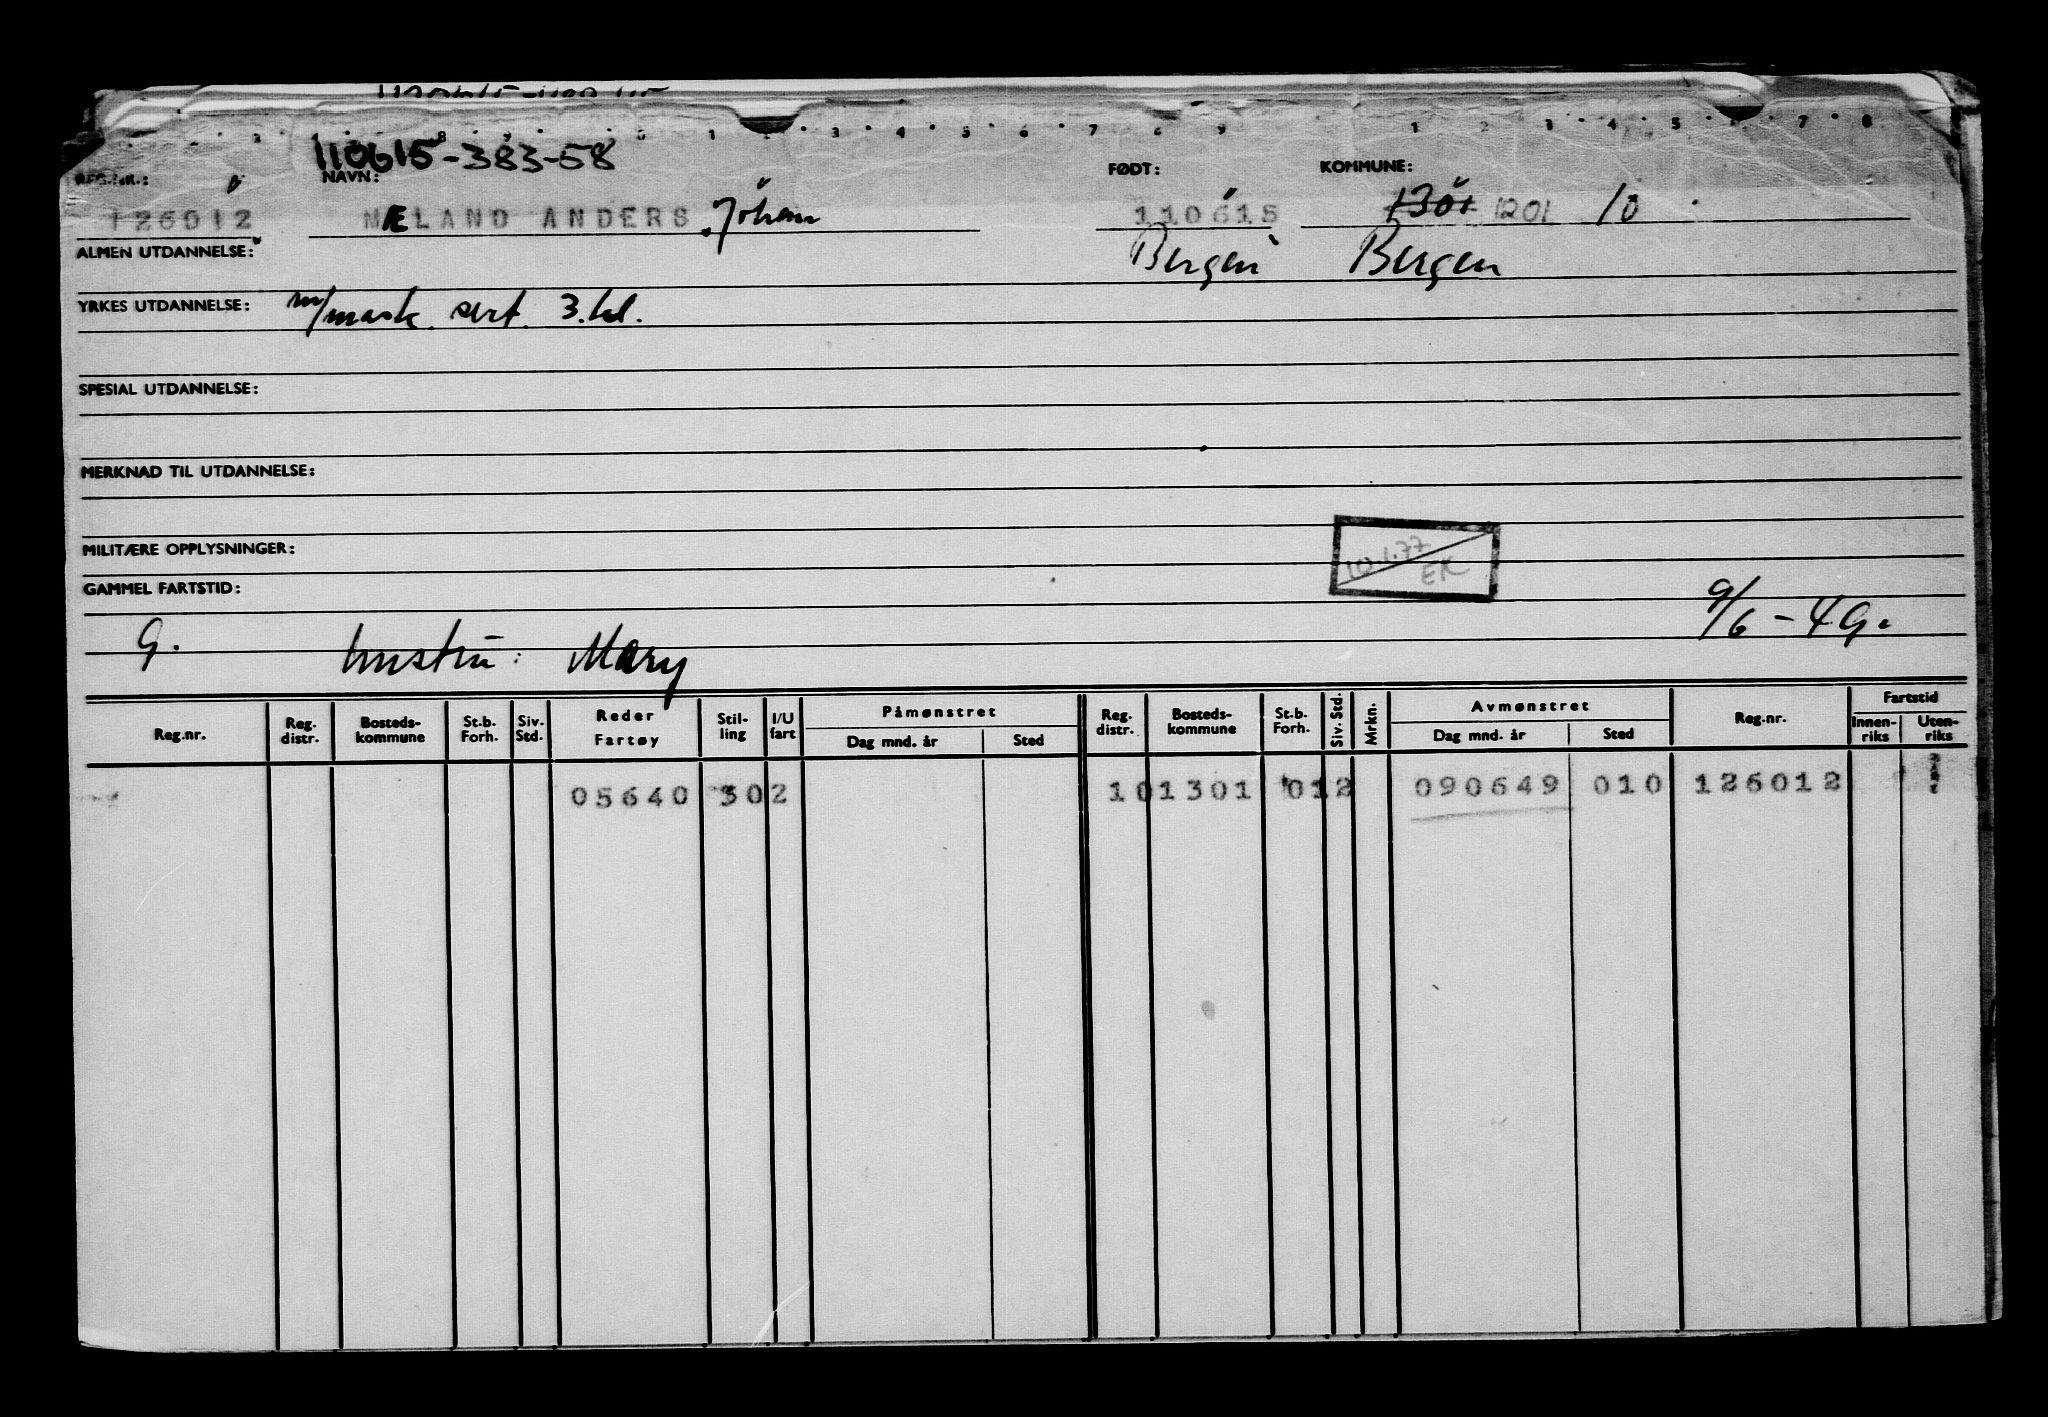 110615-383-58
REG.NR.: NAVN: FØDT: KOMMUNE:
126012 MÆLAND ANDERS Johan 110615 1301 1201 10
ALMEN UTDANNELSE: Bergen Bergen
YRKES UTDANNELSE: m/mask. sert. 3.kl.
SPESIAL UTDANNELSE:
MERKNAD TIL UTDANNELSE:
MILITÆRE OPPLYSNINGER:
10.1.77
EK
GAMMEL FARTSTID:
9/6 - 49.
G. hustru: Mary
Reg.nr. Reg. distr. Bosteds-kommune St.b. Forh. Siv. Std. Reder Fartøy Stil-ling I/U fart Påmønstret Dag mnd. år Sted Reg. distr. Bosteds-kommune St.b. Forh. Siv. Std. Mrkn. Avmønstret Dag mnd. år Sted Reg.nr. Fartstid Innen-riks Uten-riks
05640 302 101301 012 090649 010 126012